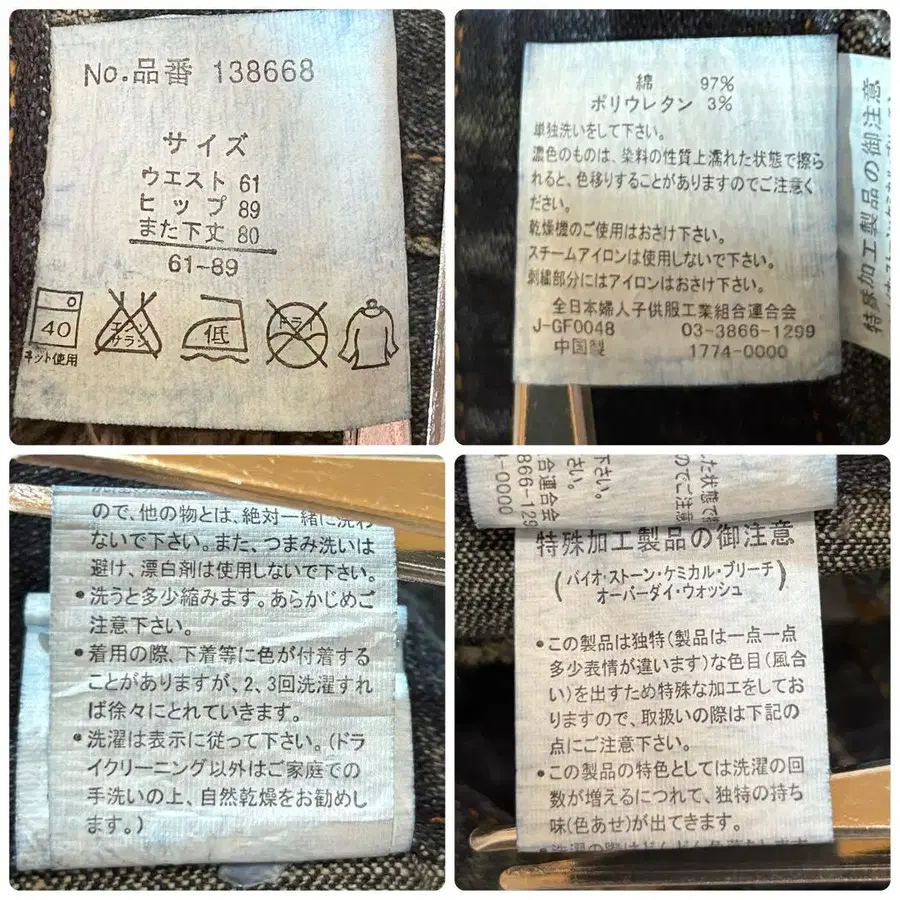 No.品番 138668
サイズ
ウエスト 61
ヒップ 89
また下丈 80
61-89
40
ネット使用
エンソ
サラシ
低
ドライ
綿 97%
ポリウレタン 3%
単独洗いをして下さい。
濃色のものは、染料の性質上濡れた状態で擦ら
れると、色移りすることがありますのでご注意く
ださい。
乾燥機のご使用はおさけ下さい。
スチームアイロンは使用しないで下さい。
刺繍部分にはアイロンはおさけ下さい。
全日本婦人子供服工業組合連合会
J-GF0048 03-3866-1299
中国製 1774-0000
特殊加工製品の御注意
ので、他の物とは、絶対一緒に洗わ
ないで下さい。また、つまみ洗いは
避け、漂白剤は使用しないで下さい。
•洗うと多少縮みます。あらかじめご
注意下さい。
•着用の際、下着等に色が付着する
ことがありますが、2、3回洗濯すれ
ば徐々にとれていきます。
•洗濯は表示に従って下さい。(ドラ
イクリーニング以外はご家庭での
手洗いの上、自然乾燥をお勧めし
ます。)
た状態で
のでご注意
下さい。
さい。
合連合会
866-129
-0000
特殊加工製品の御注意
(バイオ・ストーン・ケミカル・ブリーチ
オーバーダイ・ウォッシュ)
•この製品は独特(製品は一点一点
多少表情が違います)な色目(風合
い)を出すため特殊な加工をしてお
りますので、取扱いの際は下記の
点にご注意下さい。
•この製品の特色としては洗濯の回
数が増えるにつれて、独特の持ち
味(色あせ)が出てきます。